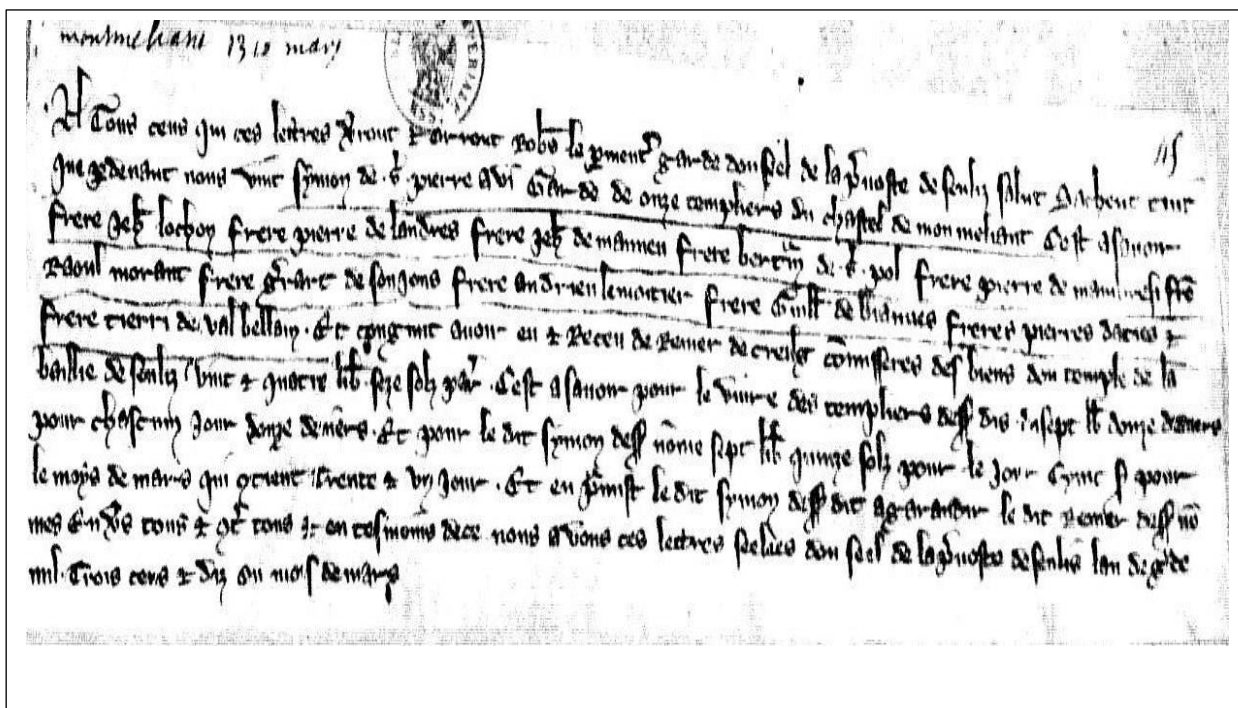 montmeliant 1310 mars
115
A Tous ceus qui ces lettres verront et orront Robs le permentr garde dou seel de la pvoste de senliz salut Sachent tuit
que pdevant nous vint symon de s. pierre avi Garde de onze templiers du chastel de monmeliant Cest asavoir
frere Jeh lochon frere pierre de landres frere Jeh de manneu frere bertin de s. pol frere pierre de maubresi fre
Raoul morant frere grart de sonjons frere andrieu lemoitier frere Guill de biauues freres pierres dacies et
frere tierri de val bellain. Et congnut avoir eu et Receu de Renier de creilg comisseres des biens dou temple de la
baillie de senliz vint et quatre lib. seze solz par. Cest asavoir pour le vivre des templiers dess dis. disept lb. donze deniers
pour chascun Jour donze deners. Et pour le dit symon dess nome sept lib quinze solz pour le Jour cinc s pour
le moys de mars qui qtient trente et un Jour. Et en pmist le dit symon dess dit agarantir le dit Renier dess no
mes Envs tous et qt tous Et en tesmoins dece nous avons ces lettres seelees dou seel de la pvoste de senlis lan de gr de
mil. Trois cens et diz ou mois de mars